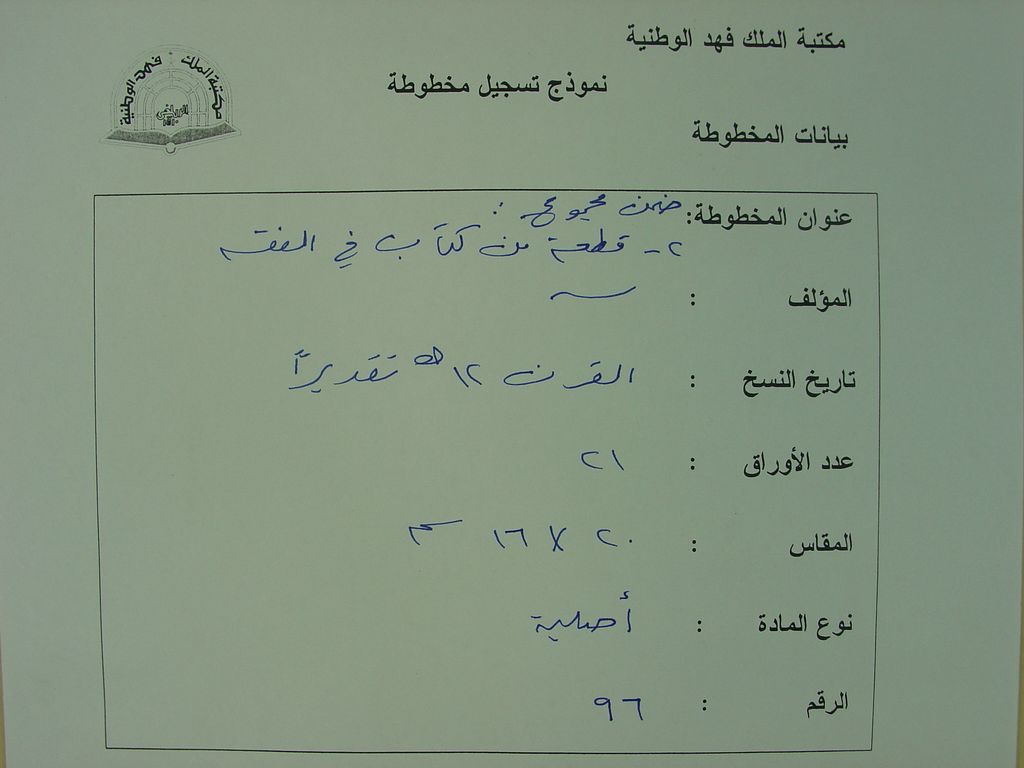 مكتبة الملك فهد الوطنية
نموذج تسجيل مخطوطة
مكتبة الملك فهد الوطنية
الرياض
بيانات المخطوطة
عنوان المخطوطة: ضمن مجموع :
٢- قطعة من كتاب في الفقه
المؤلف : ـــ
تاريخ النسخ : القرن ١٢ هـ تقديراً
عدد الأوراق : ٢١
المقاس : ٢٠ × ١٦ سم
نوع المادة : أصلية
الرقم : ٩٦